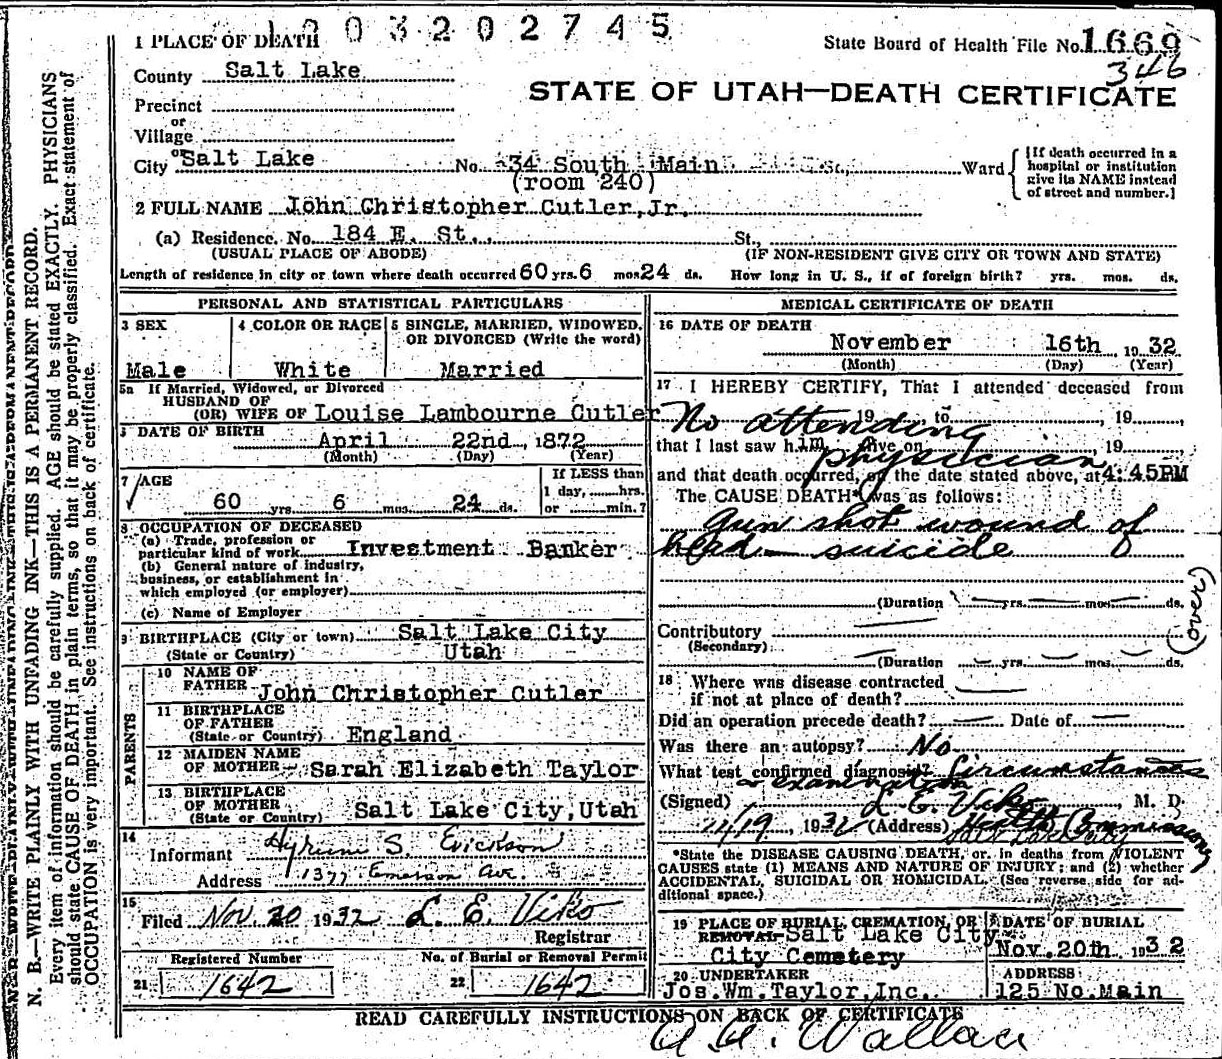 1003202745
1 PLACE OF DEATH
State Board of Health File No. 1669
346
County Salt Lake
STATE OF UTAH—DEATH CERTIFICATE
Precinct
or
Village
or
City Salt Lake No. 34 South Main St., Ward {[If death occurred in a hospital or institution give its NAME instead of street and number.]
(room 240)
2 FULL NAME John Christopher Cutler, Jr.
(a) Residence. No. 184 E. St., St.,
(USUAL PLACE OF ABODE) (IF NON-RESIDENT GIVE CITY OR TOWN AND STATE)
Length of residence in city or town where death occurred 60 yrs. 6 mos. 24 ds. How long in U. S., if of foreign birth? yrs. mos. ds.
PERSONAL AND STATISTICAL PARTICULARS
3 SEX
Male
4 COLOR OR RACE
White
5 SINGLE, MARRIED, WIDOWED,
OR DIVORCED (Write the word)
Married
5a If Married, Widowed, or Divorced
HUSBAND OF
(OR) WIFE OF Louise Lambourne Cutler
DATE OF BIRTH
April 22nd, 1872
(Month) (Day) (Year)
7 AGE
60 yrs. 6 mos. 24 ds.
If LESS than
1 day, hrs.
or min.?
8 OCCUPATION OF DECEASED
(a) Trade, profession or
particular kind of work Investment Banker
(b) General nature of industry,
business, or establishment in
which employed (or employer)
(c) Name of Employer
9 BIRTHPLACE (City or town) Salt Lake City
(State or Country) Utah
PARENTS
10 NAME OF
FATHER John Christopher Cutler
11 BIRTHPLACE
OF FATHER
(State or Country) England
12 MAIDEN NAME
OF MOTHER Sarah Elizabeth Taylor
13 BIRTHPLACE
OF MOTHER
(State or Country) Salt Lake City, Utah
14
Informant Hyrum S. Erickson
Address 1377 Emerson Ave.
15
Filed Nov. 20 1932 L. E. Viko
Registrar
Registered Number
21 1642
No. of Burial or Removal Permit
22 1642
MEDICAL CERTIFICATE OF DEATH
16 DATE OF DEATH
November 16th 1932
(Month) (Day) (Year)
17 I HEREBY CERTIFY, That I attended deceased from
No attending 19 to , 19
that I last saw him alive on physician , 19
and that death occurred, on the date stated above, at 4:45PM
The CAUSE DEATH* was as follows:
Gun shot wound of
head — suicide
(Duration yrs. mos. ds.
(over)
Contributory
(Secondary)
(Duration yrs. mos. ds.
18 Where was disease contracted
if not at place of death?
Did an operation precede death? — Date of —
Was there an autopsy? No
What test confirmed diagnosis? Circumstances
& examination
(Signed) L. E. Viko, M. D.
11/19, 1932 (Address) Health Commissioner
Salt Lake City
*State the DISEASE CAUSING DEATH, or, in deaths from VIOLENT
CAUSES state (1) MEANS AND NATURE OF INJURY; and (2) whether
ACCIDENTAL, SUICIDAL OR HOMICIDAL. (See reverse side for ad-
ditional space.)
19 PLACE OF BURIAL, CREMATION, OR
REMOVAL Salt Lake City
City Cemetery
DATE OF BURIAL
Nov. 20th 1932
20 UNDERTAKER
Jos. Wm. Taylor, Inc.
ADDRESS
125 No. Main
READ CAREFULLY INSTRUCTIONS ON BACK OF CERTIFICATE
Wallace
N. B.—WRITE PLAINLY WITH UNFADING INK—THIS IS A PERMANENT RECORD.
Every item of information should be carefully supplied. AGE should be stated EXACTLY. PHYSICIANS
should state CAUSE OF DEATH in plain terms, so that it may be properly classified. Exact statement of
OCCUPATION is very important. See instructions on back of certificate.